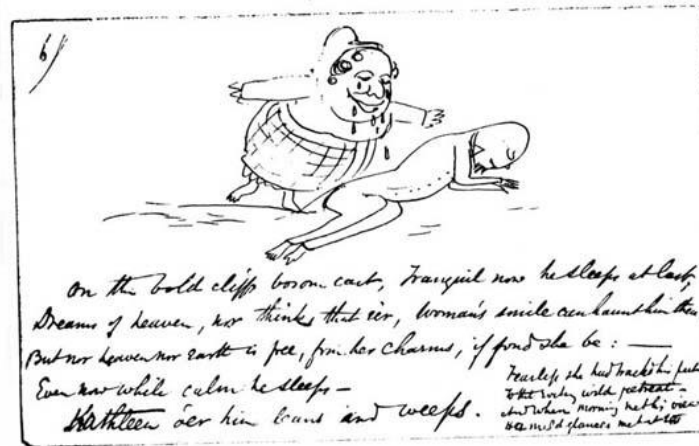 6
On the bold cliffs bosom cast, Tranquil now he sleeps at last,
Dreams of heaven, nor thinks that e'er, Woman's smile can haunt him there
But nor heaven nor earth is free, from her charms, if fond she be : —
Even now while calm he sleeps –
Kathleen o'er him leans and weeps.
Fearless she had track'd his feet
To this rocky wild retreat –
And when morning met his view
Her mild glances met it